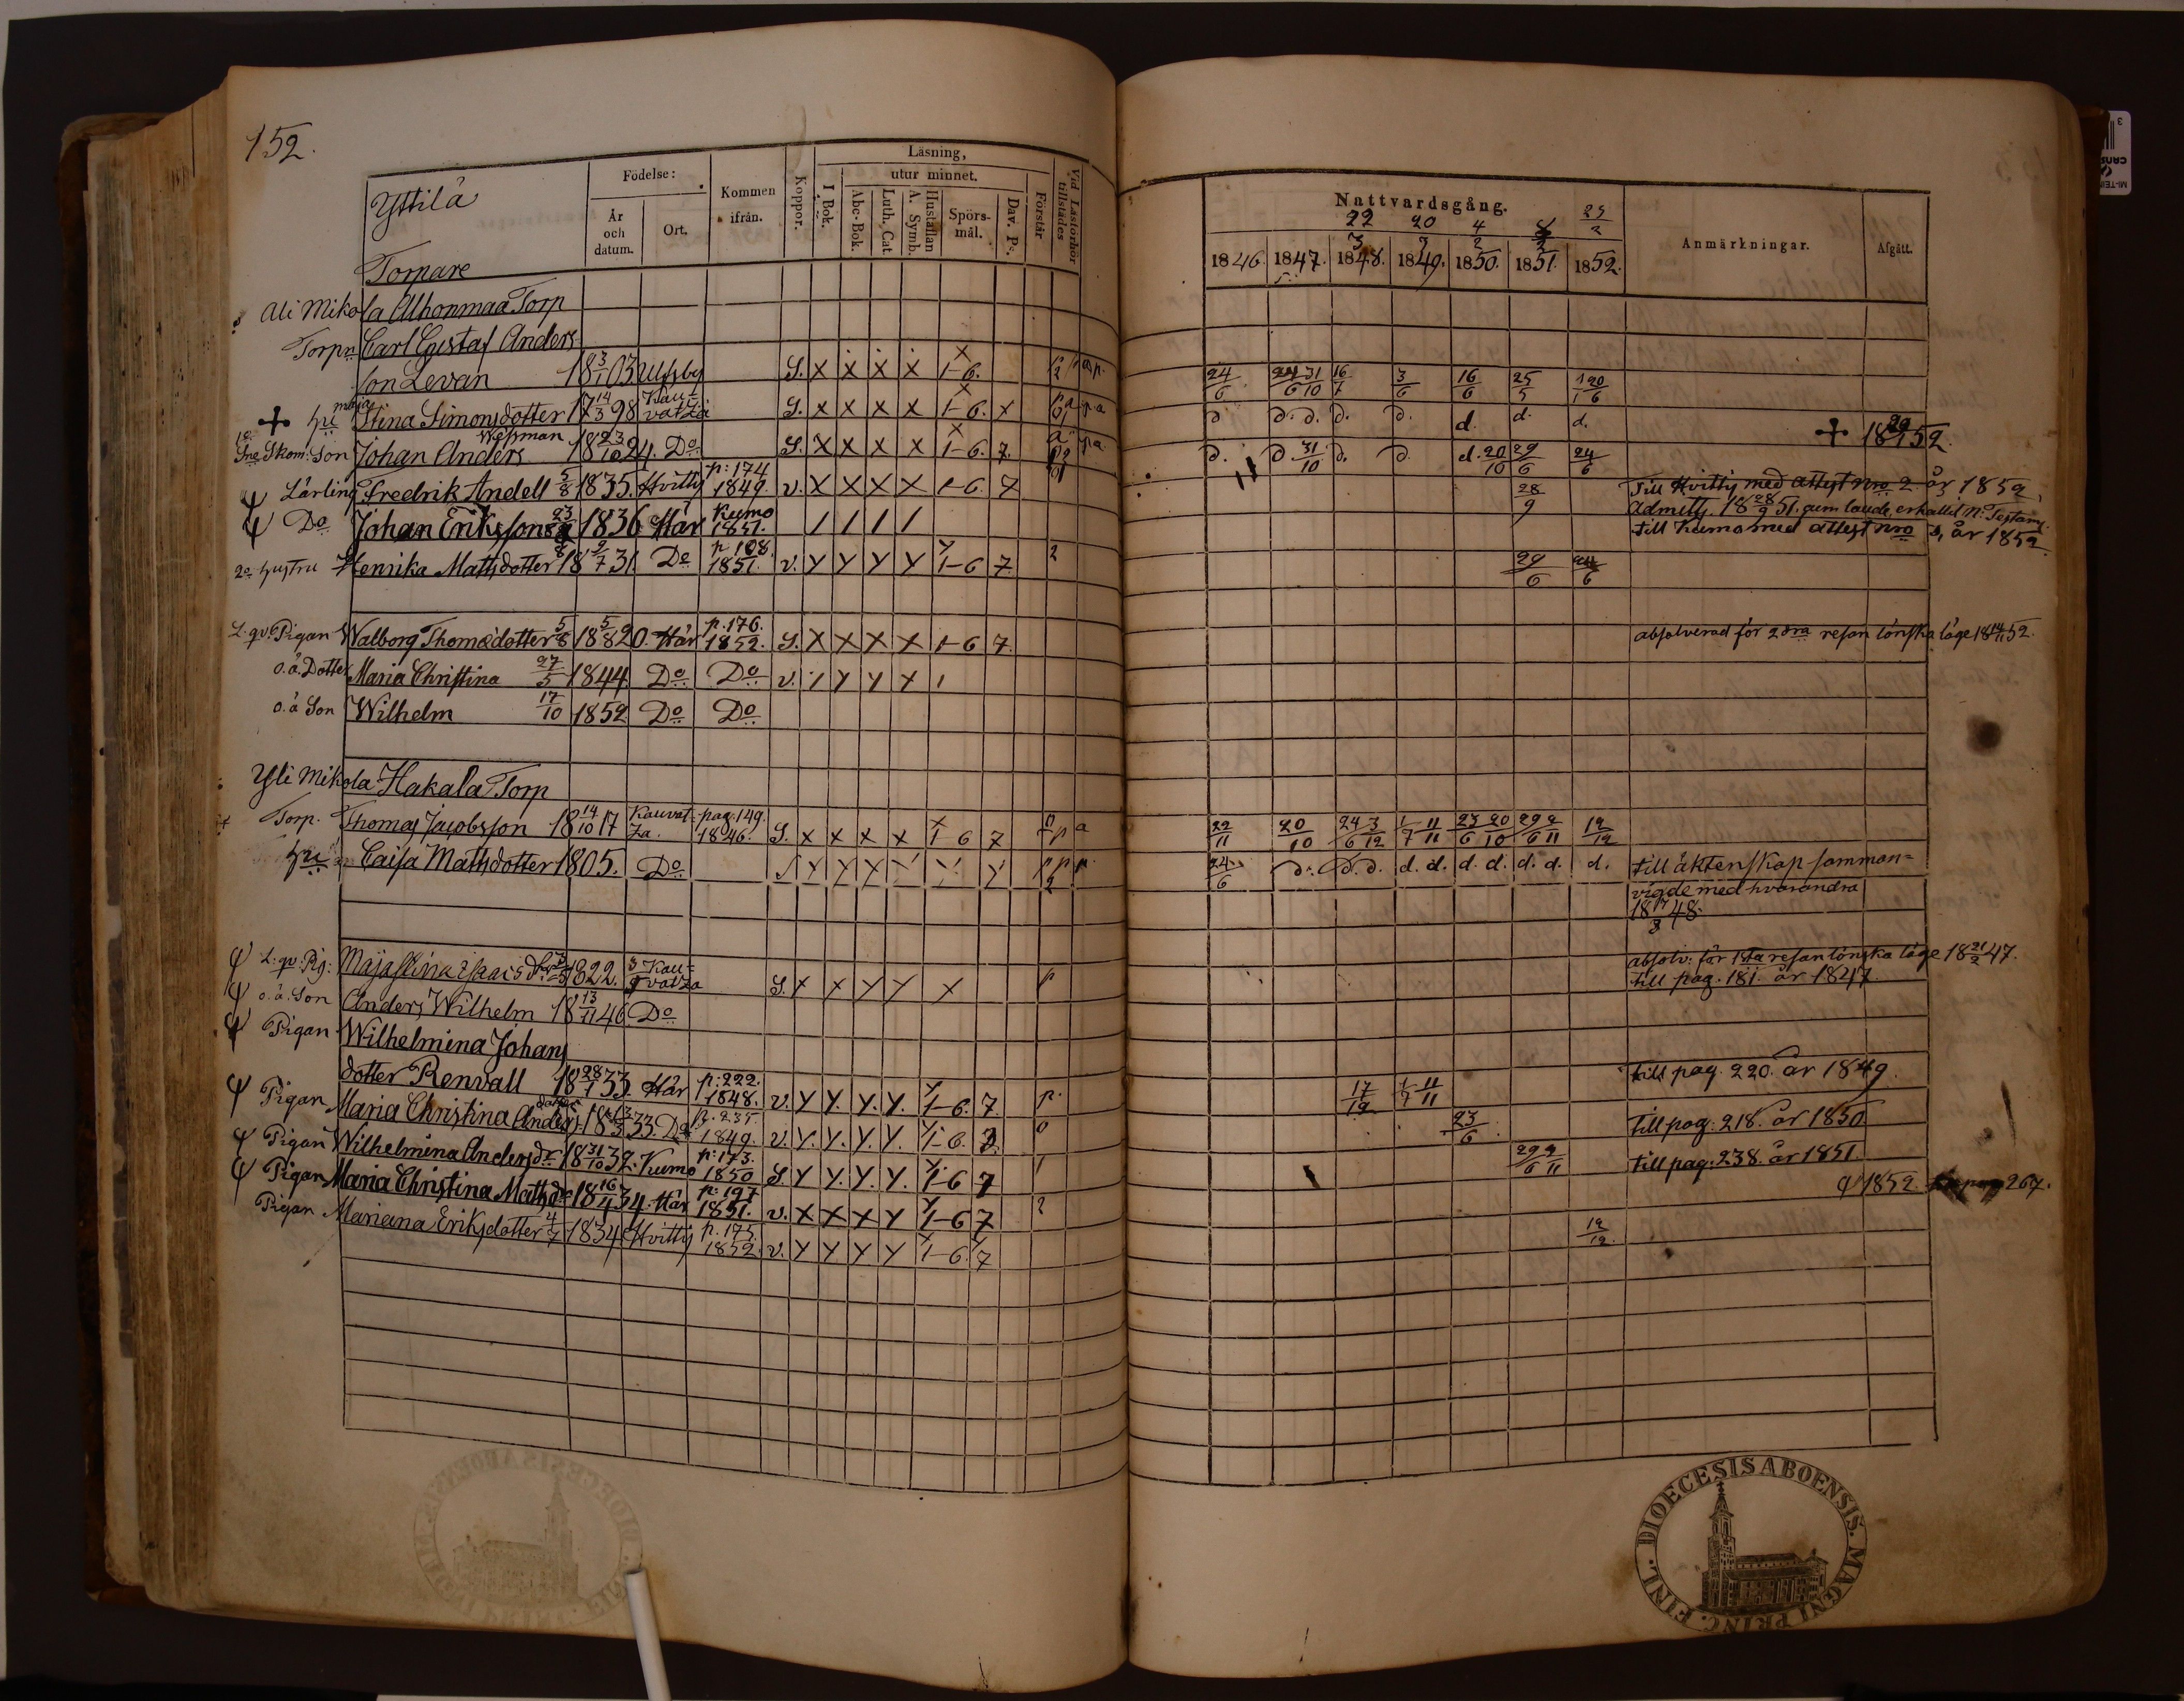 152.
Yttilä
Torpare
Födelse:
År och datum.
Ort.
Kommen ifrån.
Koppor.
Läsning,
I Bok.
utur minnet.
Abc-Bok.
Luth. Cat.
Hustaflan A. Symb.
Spörs-mål.
Dav. Ps.
Förstår
Vid Läsförhör tillstädes
Nattvardsgång.
22/3 20/3 4/2 25/2
1846. 1847. 1848. 1849. 1850. 1851. 1852.
Anmärkningar.
Afgått.
Ali Mikola Alhonmaa Torp
Torpn Carl Gustaf Anders
son Levan 18 3/1 03 Ulfsby S. X X X X 1-6. 24/6 24/6 31/10 16/7 3/6 16/6 25/5
+ hu maja Stina Simonsdotter 17 14/3 98 Kau-vatza S. X X X X 1-6. X d. d. d. d. d. d. d. d. + 18 29/1 52.
Skom. Son Johan Anders Wessman 18 23/10 24. Do S. X X X X 1-6. 7. d. d. 31/10 d. d. d. 20/10 29/6 24/6
Lärling Fredrik Andell 5/8 1835. Hvittis p: 174 1849. v. X X X X 1-6 7 28/9 Till Hvittis med attest nro 2 år 1852,
Do Johan Eriksson 1836 Här Kumo 1851. / / / / Admitt. 18 28/9 51. cum laude, erhållit N. Testam.
till Kumo med attest nro 3, år 1852.
2a hustru Henrika Mattsdotter 18 9/7 31 Do p 108 1851. v. Y Y Y Y 1-6 7. 2 29/6 24/6
L. qv. Pigan Walborg Thomædotter 5/8 18 5/8 20. Här p. 176. 1852. S. X X X X 1-6 7. absolverad för 2dra resan lönska läge 18 14/11 52.
o. ä. Dotter Maria Christina 27/5 1844 Do Do v. / Y Y X 1
o. ä Son Wilhelm 17/10 1852 Do Do
Yli Mikola Hakala Torp
Torp. Thomas Jacobsson 18 14/10 17 Kauvat-za. pag. 149. 1846. S. X X X X 1-6 7 22/11 20/10 24/6 3/12 1/7 11/11 23/6 20/10 29/6 2/11 12/12
hu Caisa Mattsdotter 1805. Do 24/6 d. d. d. d. d. d. d. d. d. d. till äktenskap samman-
vigde med hvarandra
18 17/3 48.
L: qv: Pig: Majastina Isacsdr 1822. Kau-vatza S. X X Y Y X p absolv: för 1sta resan lönska läge 18 21/2 47.
till pag. 181. år 1847.
o. ä. Son Anders Wilhelm 18 13/11 46 Do
Pigan Wilhelmina Johans
dotter Renvall 18 28/1 33. Här p: 222. 1848. v. Y Y. Y. Y. 1-6. 7. p. 17/12 1/7 11/11 till pag. 220. år 1849.
Pigan Maria Christina Anders dotter 33. Do p. 235. 1849. v. Y. Y. Y. Y. 1-6. 7. 0 23/6 till pag: 218. år 1850
Pigan Wilhelmina Andersdr 18 31/10 32. Kumo p: 173. 1850 S. Y Y. Y. Y. 1-6 7 1 29/6 2/11 till pag: 238. år 1851.
Pigan Maria Christina Mattsdr 18 16/4 34. Här p: 197 1851. v. X X X Y 1-6 7 2 1852. 267.
Pigan Mariana Eriksdotter 4/7 1834 Hvittis p. 175. 1852. v. Y Y Y Y 1-6. 7 12/12.
FINL. DIOECESIS ABOENSIS. MAGNI PRINC.